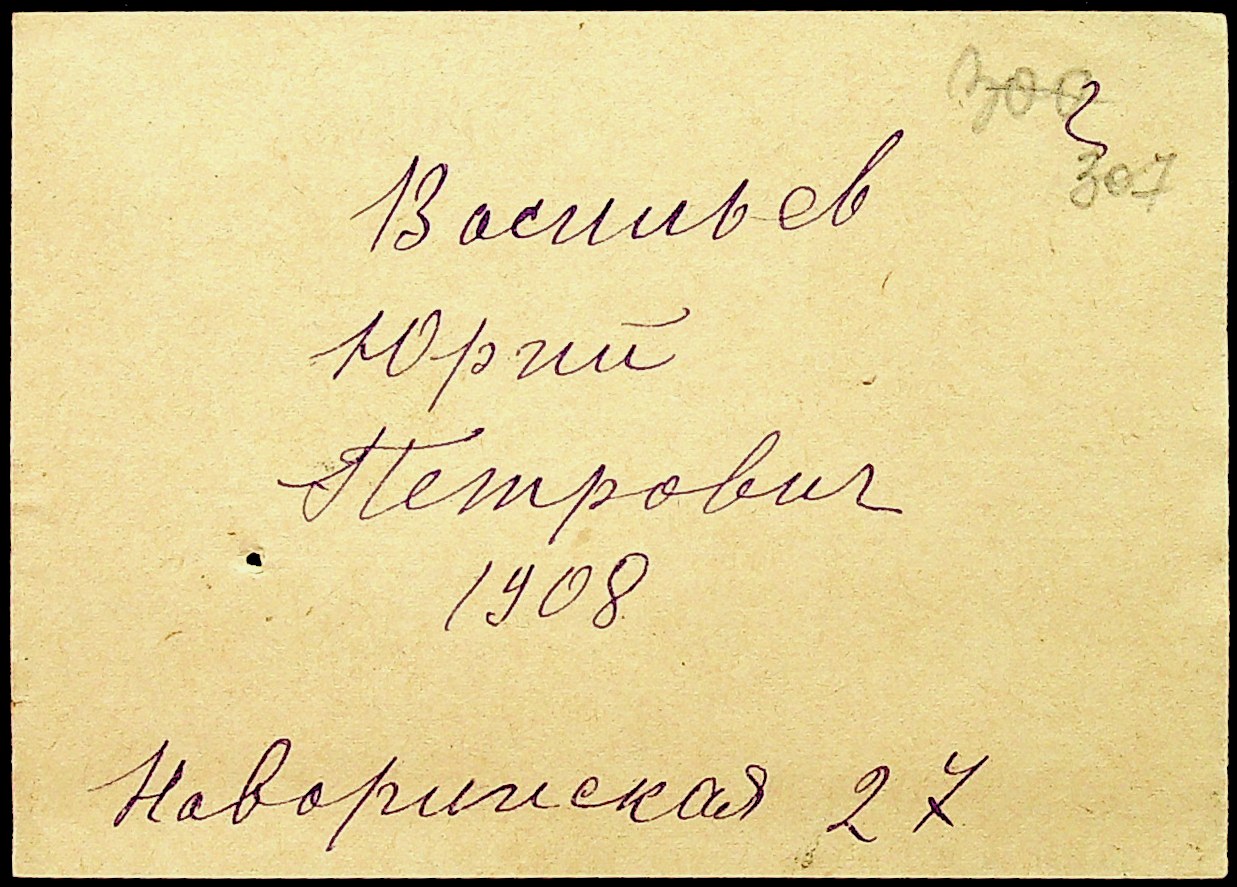 307
Васильев
Юрий
Петрович
1908
Новоринская 27